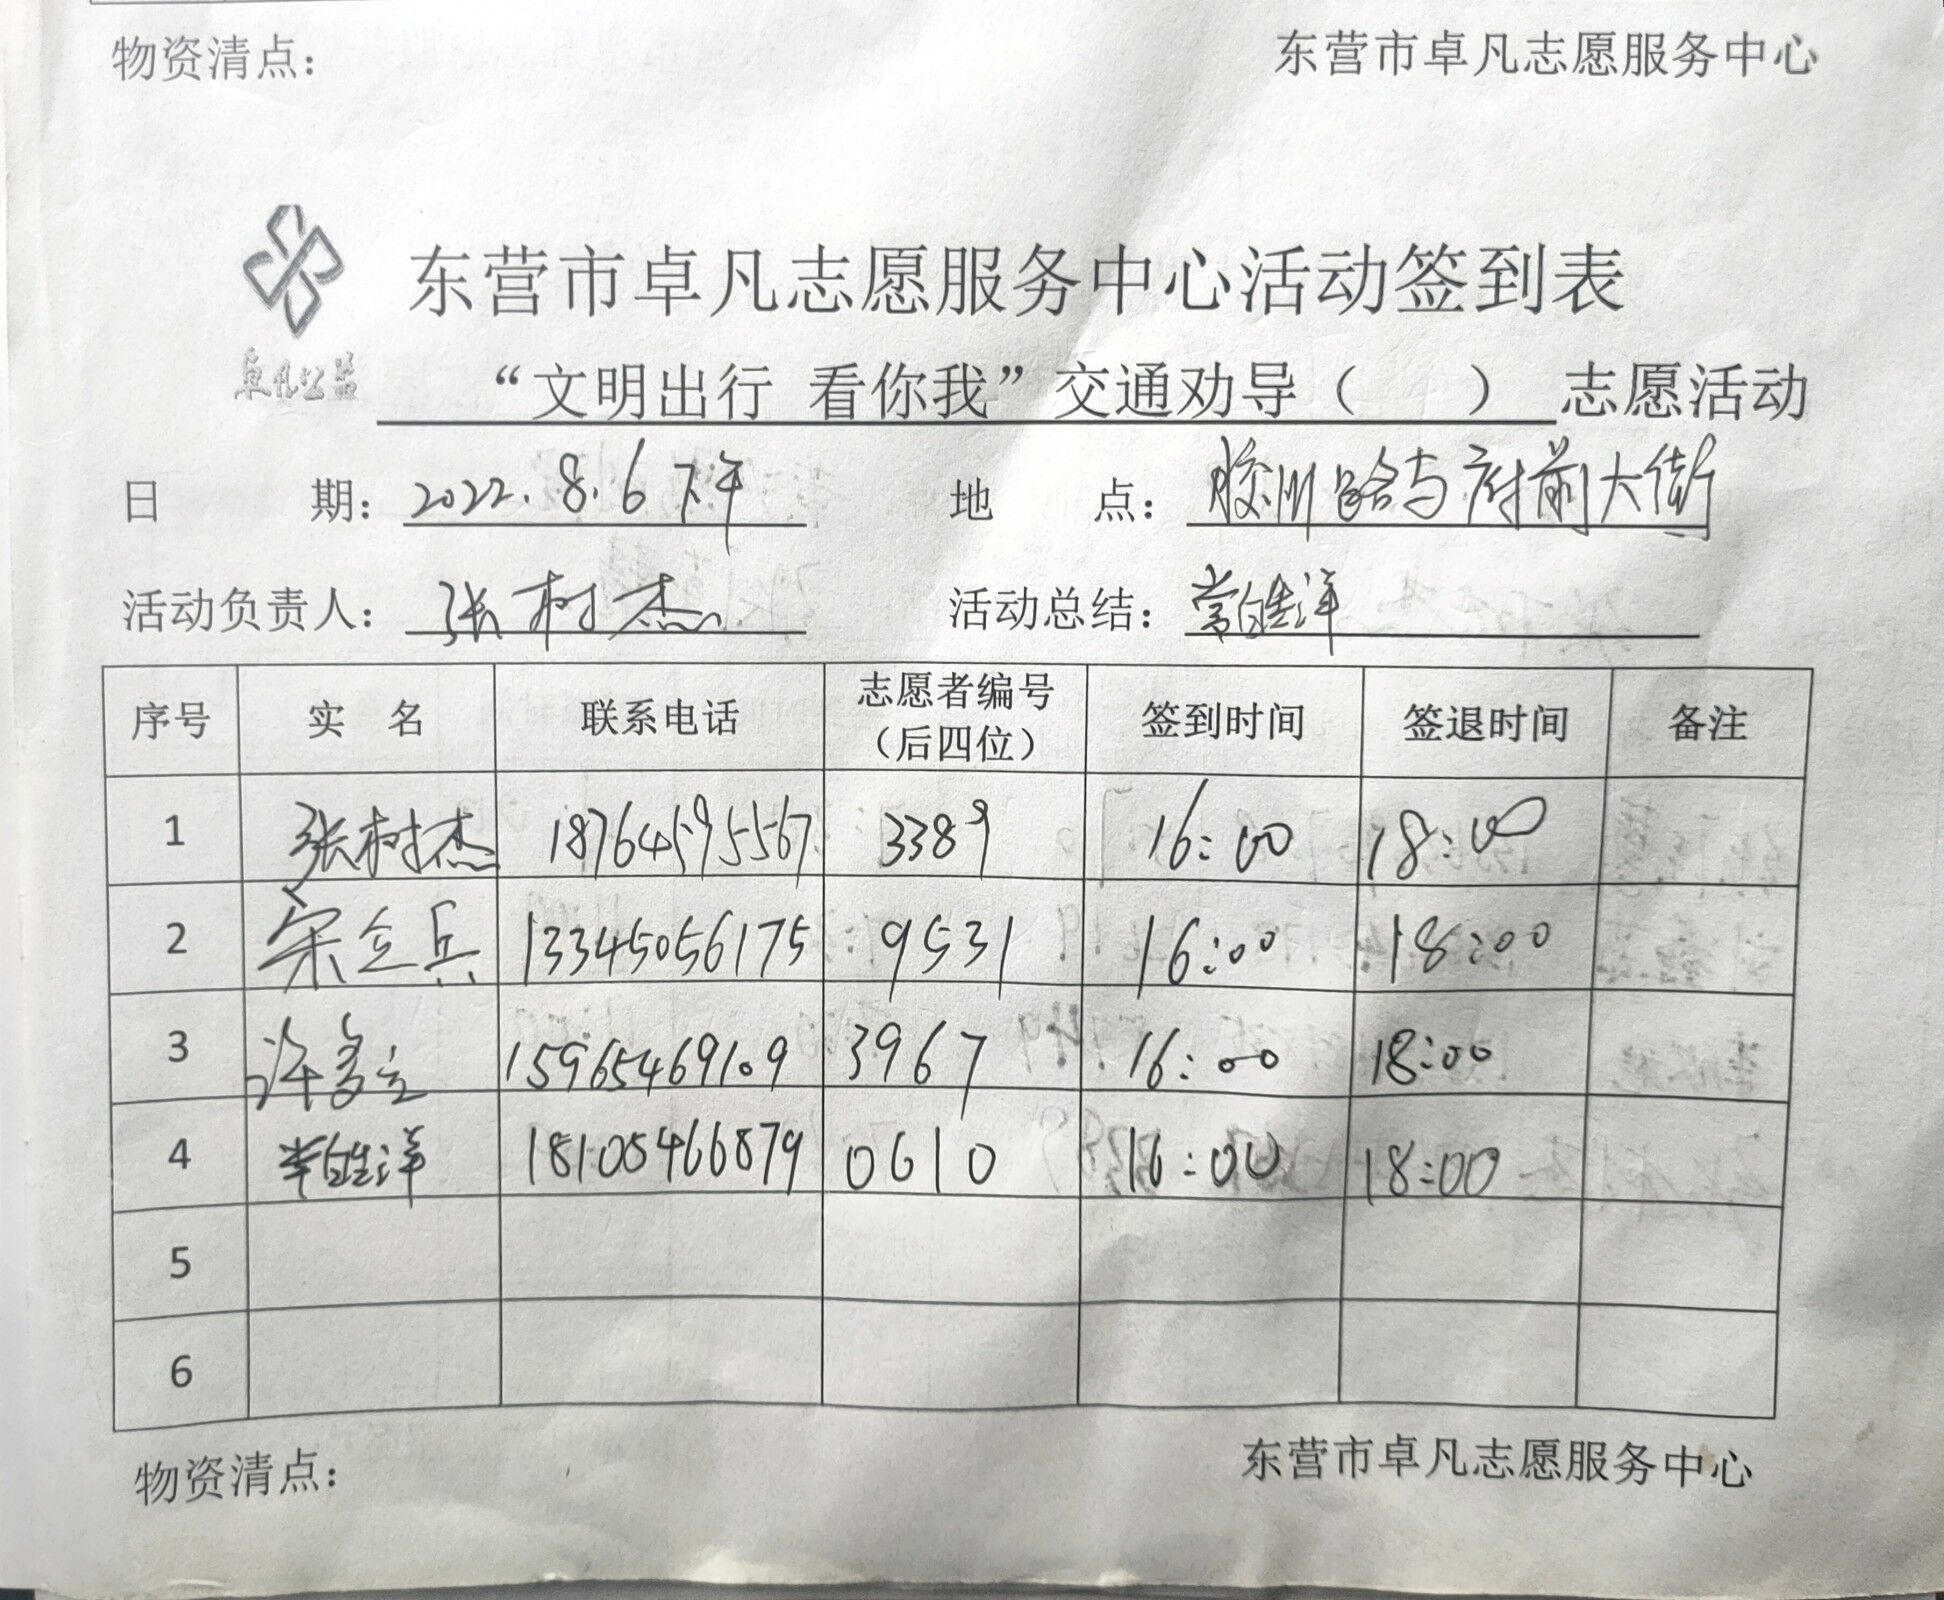 物资清点： 东营市卓凡志愿服务中心
东营市卓凡志愿服务中心活动签到表
卓凡公益
“文明出行 看你我”交通劝导（ ） 志愿活动
日 期： 2022.8.6下午 地 点： 胶州路与府前大街
活动负责人： 张树杰 活动总结： 常皓洋
序号 实 名 联系电话 志愿者编号（后四位） 签到时间 签退时间 备注
1 张树杰 18764595567 3389 16:00 18:00
2 宋立兵 13345056175 9531 16:00 18:00
3 许 15965469109 3967 16:00 18:00
4 常皓洋 18105466879 0610 16:00 18:00
5
6
物资清点： 东营市卓凡志愿服务中心